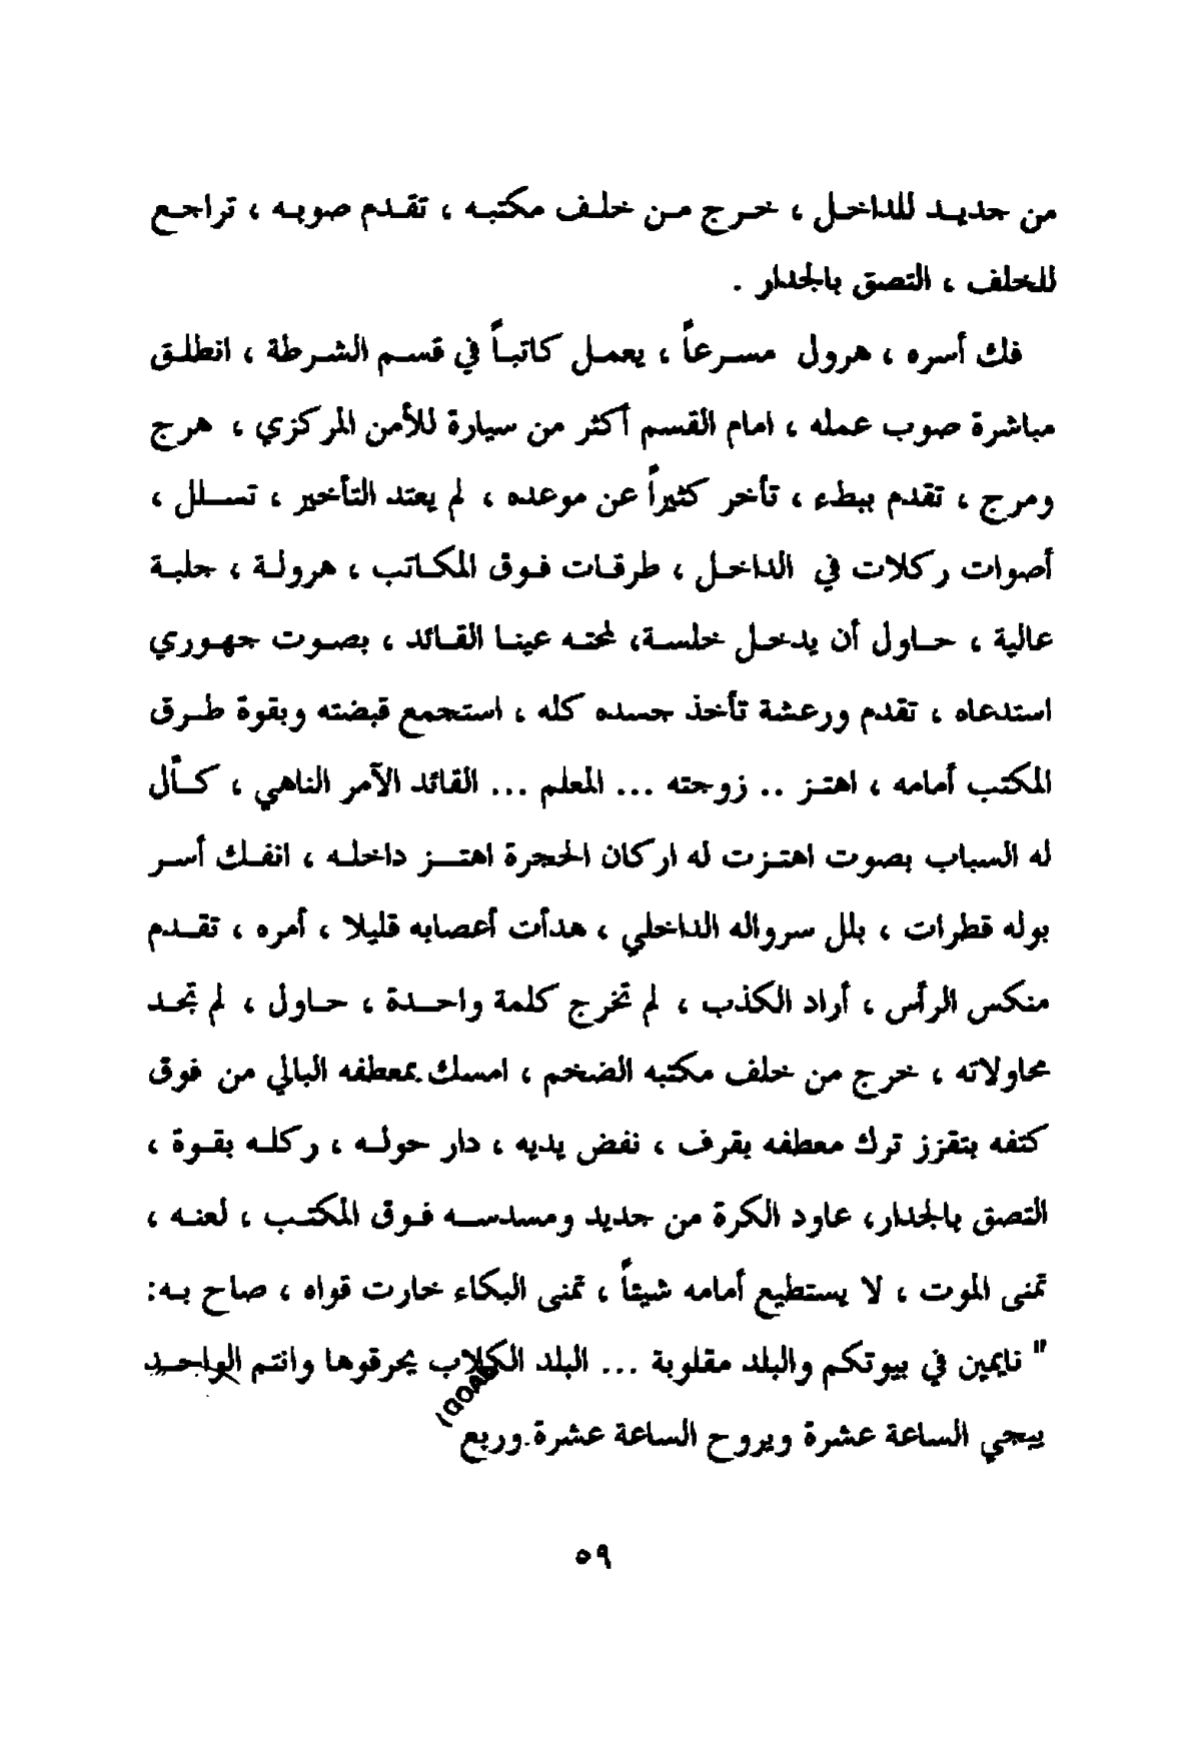 من جديد للداخل ، خرج من خلف مكتبه ، تقدم صوبه ، تراجع
للخلف ، التصق بالجدار .
فك أسره ، هرول مسرعاً ، يعمل كاتباً في قسم الشرطة ، انطلق
مباشرة صوب عمله ، امام القسم أكثر من سيارة للأمن المركزي ، هرج
ومرج ، تقدم ببطء ، تأخر كثيراً عن موعده ، لم يعتد التأخير ، تسلل ،
أصوات ركلات في الداخل ، طرقات فوق المكاتب ، هرولة ، جلبة
عالية ، حاول أن يدخل خلسة، لمحته عينا القائد ، بصوت جهوري
استدعاه ، تقدم ورعشة تأخذ جسده كله ، استجمع قبضته وبقوة طرق
المكتب أمامه ، اهتز .. زوجته ... المعلم ... القائد الآمر الناهي ، كأل
له السباب بصوت اهتزت له اركان الحجرة اهتز داخله ، انفك أسر
بوله قطرات ، بلل سرواله الداخلي ، هدأت أعصابه قليلا ، أمره ، تقدم
منكس الرأس ، أراد الكذب ، لم تخرج كلمة واحدة ، حاول ، لم تجد
محاولاته ، خرج من خلف مكتبه الضخم ، امسك بمعطفه البالي من فوق
كتفه بتقزز ترك معطفه بقرف ، نفض يديه ، دار حوله ، ركله بقوة ،
التصق بالجدار، عاود الكرة من جديد ومسدسه فوق المكتب ، لعنه ،
تمنى الموت ، لا يستطيع أمامه شيئاً ، تمنى البكاء خارت قواه ، صاح به:
" نايمين في بيوتكم والبلد مقلوبة ... البلد الكلاب يحرقوها وانتم الواحد
ييجي الساعة عشرة ويروح الساعة عشرة.وربع
٥٩